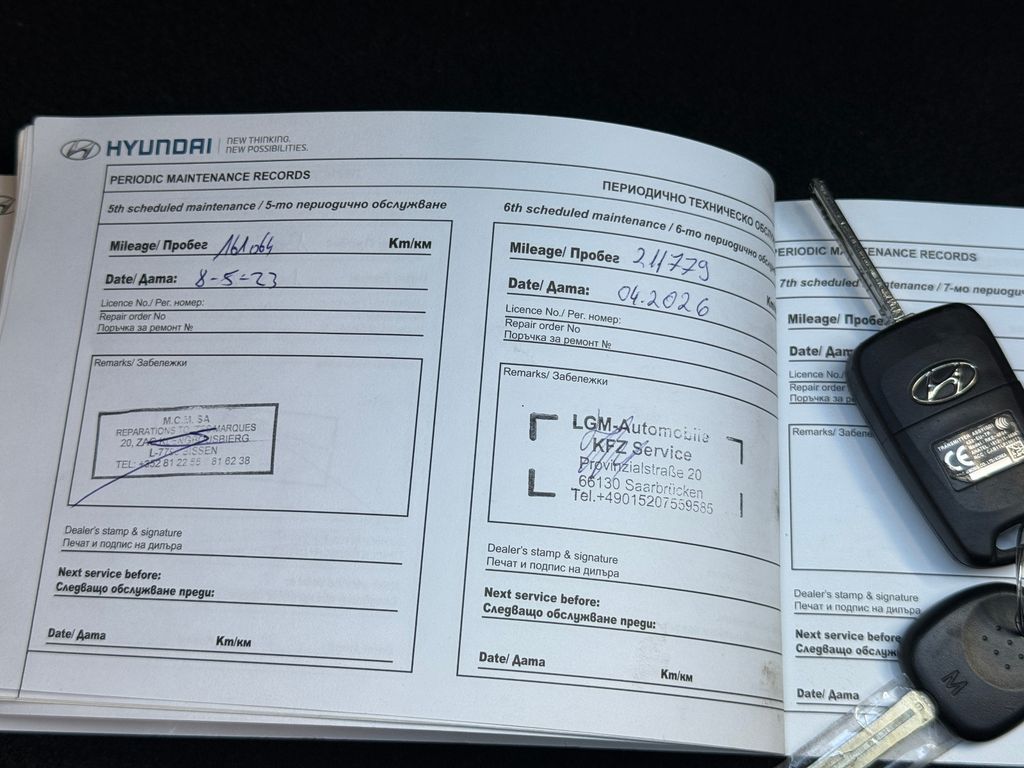 HYUNDAI
NEW THINKING.
NEW POSSIBILITIES.
PERIODIC MAINTENANCE RECORDS
ПЕРИОДИЧНО ТЕХНИЧЕСКО
5th scheduled maintenance / 5-то периодично обслужване
Mileage/ Пробег 161064 Km/км
Date/ Дата: 8-5-23
Licence No./ Рег. номер:
Repair order No
Поръчка за ремонт №
Remarks/ Забележки
M.C.M. SA
REPARATIONS MARQUES
20,
BISSEN
TEL: +352 81 22 55 81 62 38
Dealer's stamp & signature
Печат и подпис на дилъра
Next service before:
Следващо обслужване преди:
Date/ Дата Km/км
6th scheduled maintenance / 6-то периодично
Mileage/ Пробег 211779
Date/ Дата: 04.2026
Licence No./ Рег. номер:
Repair order No
Поръчка за ремонт №
Remarks/ Забележки
LGM-Automobile
KFZ Service
Provinzialstraße 20
66130 Saarbrücken
Tel.+49015207559585
Dealer's stamp & signature
Печат и подпис на дилъра
Next service before:
Следващо обслужване преди:
Date/ Дата Km/км
PERIODIC MAINTENANCE RECORDS
7th scheduled maintenance / 7-мо
Mileage/
Date/
Licence No./
Repair order
Поръчка за
Remarks/
Dealer's stamp & signature
Печат и подпис на дилъра
Next service before
Следващо
Date/ Дата
CE
M